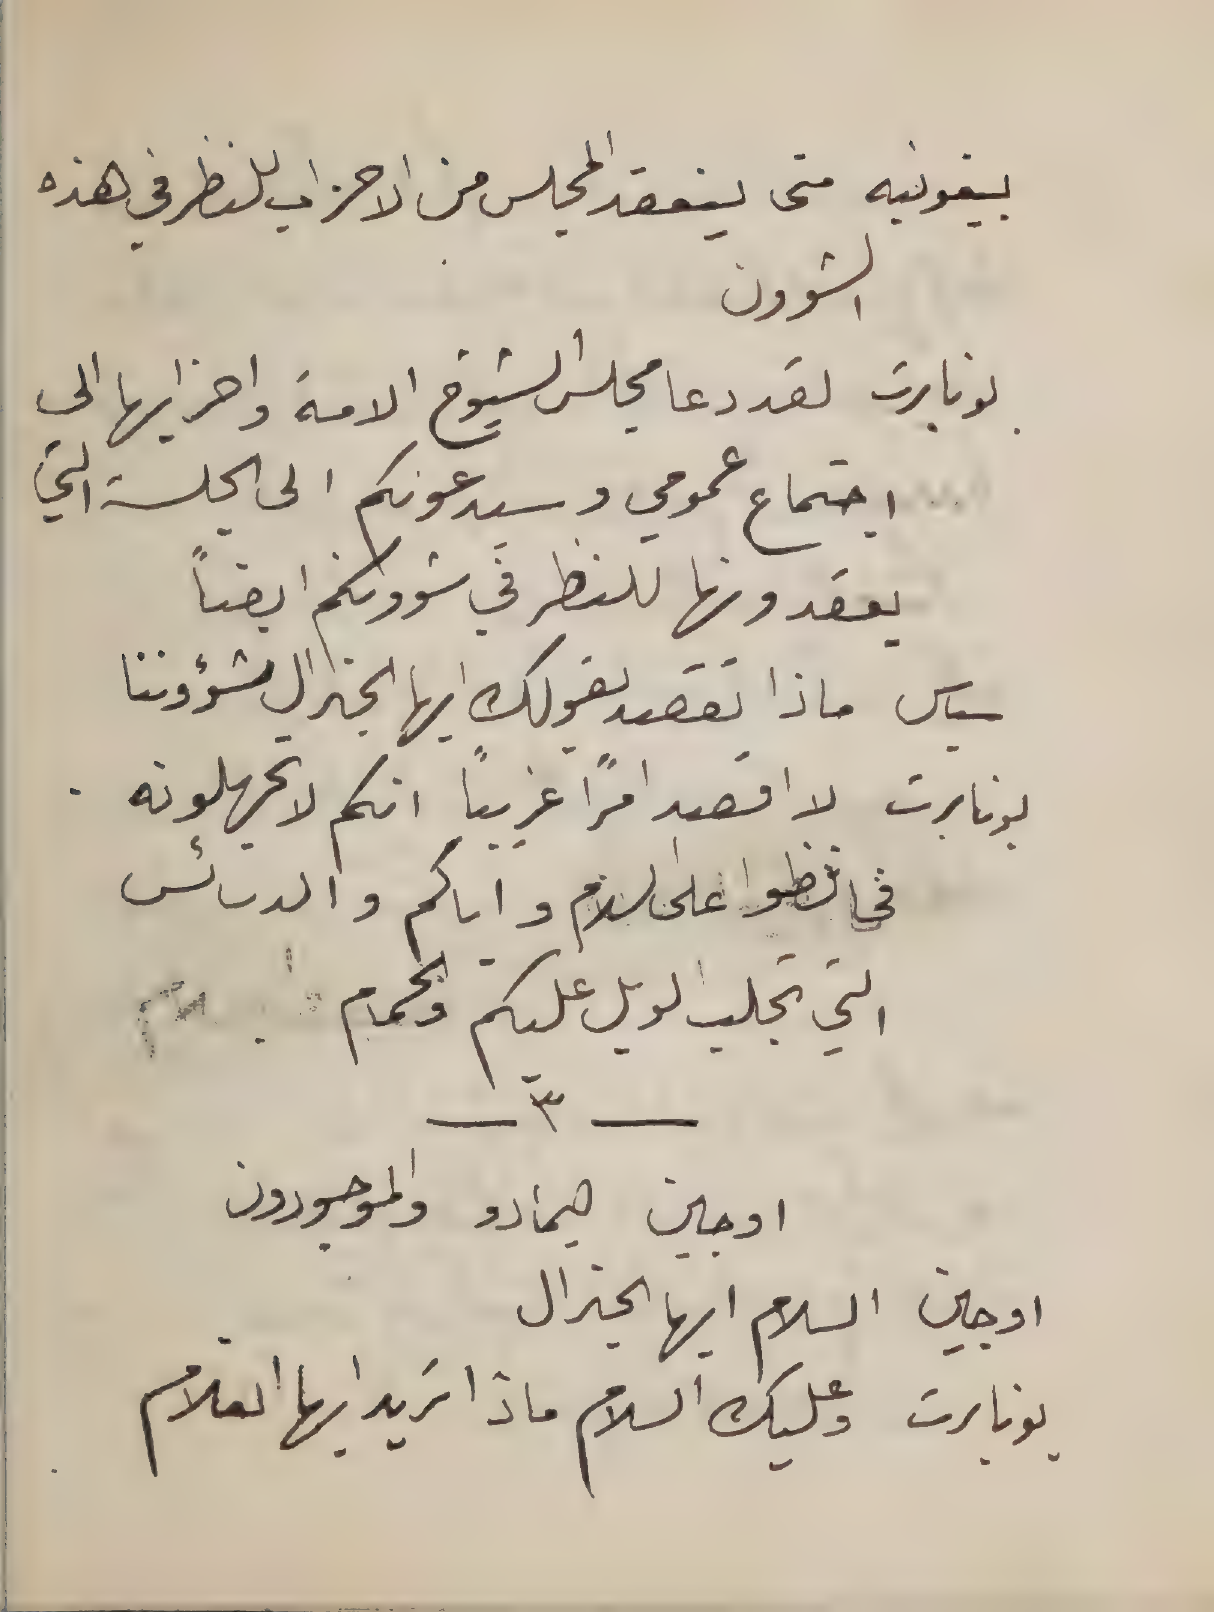 بيغونيه متى ينعقد المجلس من الاحزاب للنظر في هذه
الشوون
بونابرت لقد دعا مجلس الشيوخ الامة واحزابها الى
اجتماع عمومي وسيدعونكم الى الجلسة التي
يعقدونها للنظر في شوونكم ايضاً
سياس ماذا تقصد بقولك ايها الجنرال بشؤوننا
بونابرت لا اقصد امرًا غريبًا انكم لا تجهلونه
فحافظوا على السلام واياكم والدسائس
التي تجلب الويل عليكم والحمام
— ٣ —
اوجاين هيمادو والموجودون
اوجاين السلام ايها الجنرال
بونابرت وعليك السلام ماذا تريد ايها الغلام